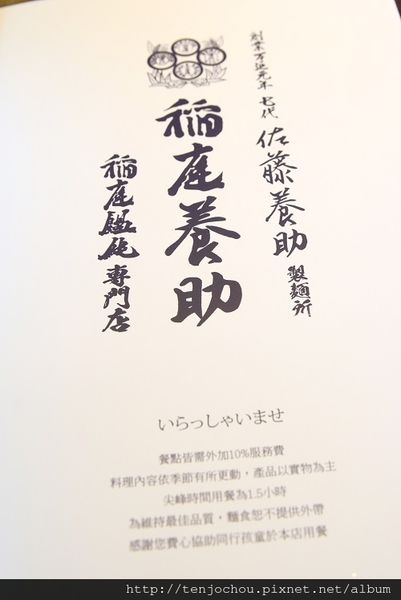 創業万延元年 七代 佐藤養助 製麺所
稲庭養助
稲庭饂飩専門店
いらっしゃいませ
餐點皆需外加10%服務費
料理內容依季節有所更動，產品以實物為主
尖峰時間用餐為1.5小時
為維持最佳品質，麵食恕不提供外帶
感謝您費心協助同行孩童於本店用餐
http://tenjochou.pixnet.net/album